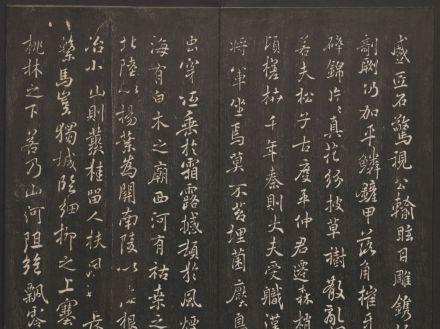 蹙匠石驚視公輸眩目雕鐫
剞劂仍加平鱗鏟甲落角摧牙
碎錦片片真花紛披草樹散亂
若夫松子古度平仲君遷森梢
頃槎枿千年秦則大夫受職漢
將軍坐焉莫不苔埋菌壓鳥
虫穿低垂於霜露撼頓於風煙
海有白木之廟西河有枯桑之
北陸以楊葉為關南陵以梅根
冶小山則叢桂留人扶風長
繫馬豈獨城臨細柳之上塞
桃林之下若乃山河阻絕飄零